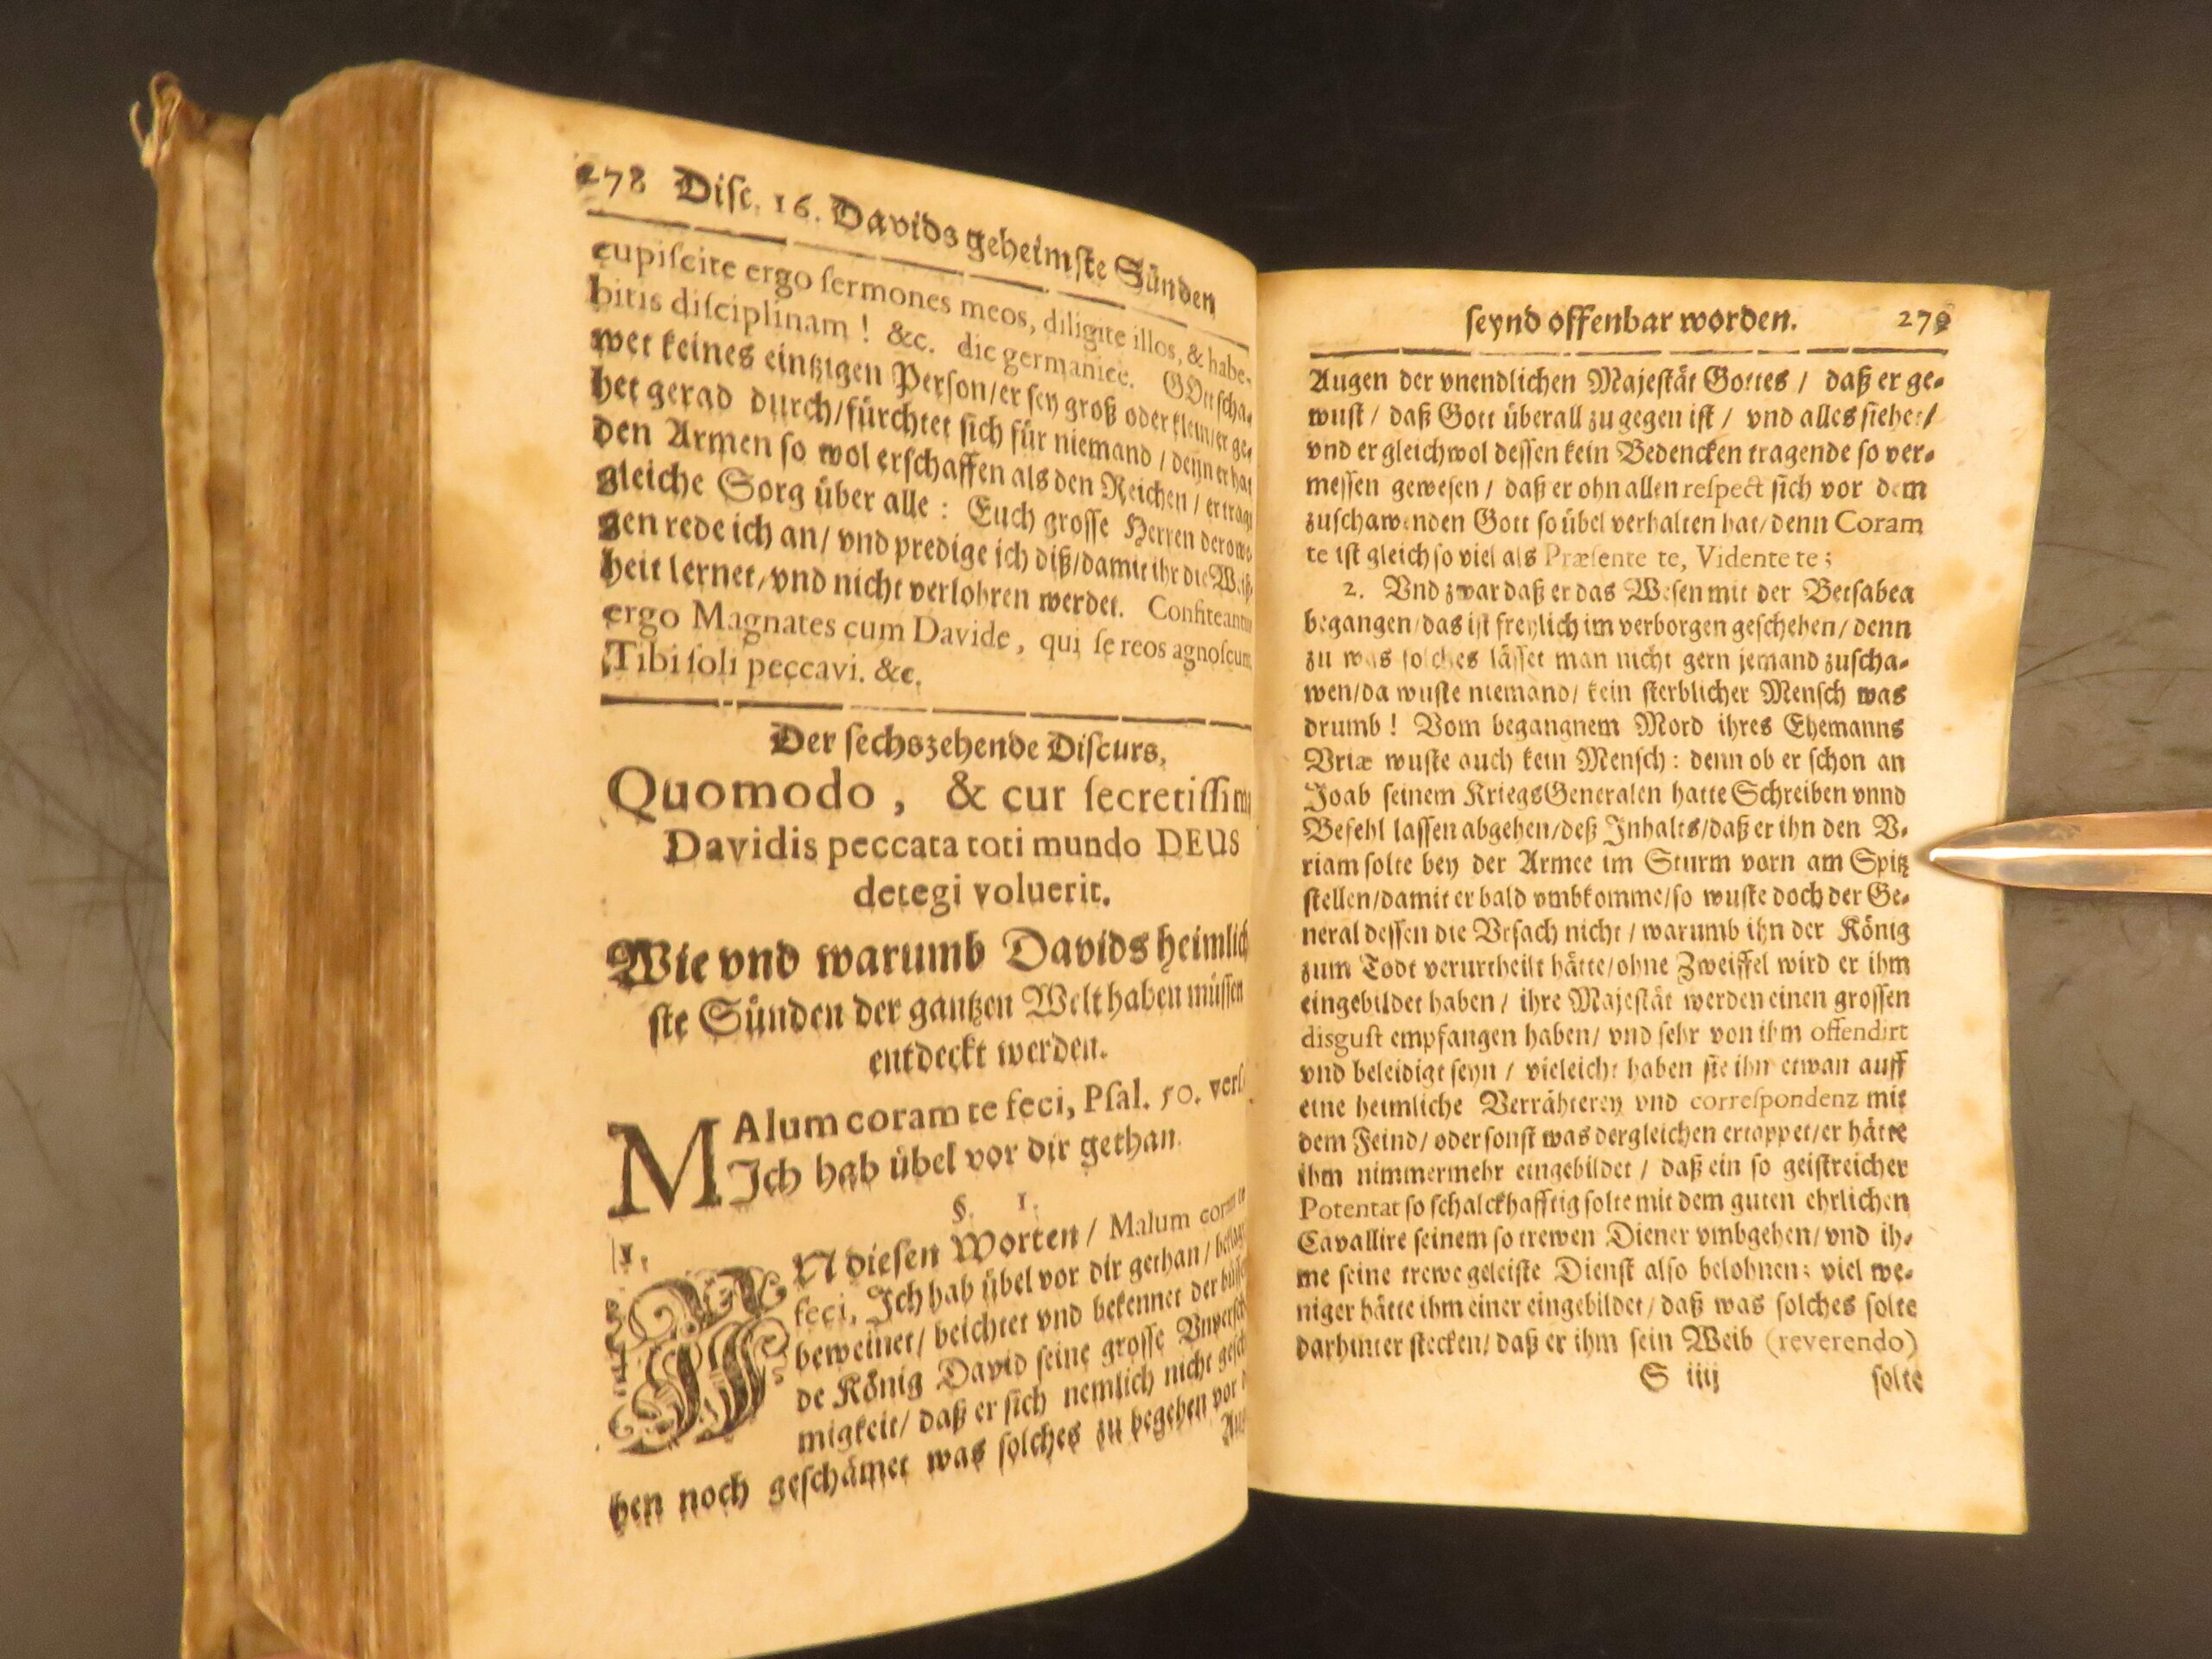 278 Diſc. 16. Davids geheimſte Sünden
cupiſcite ergo ſermones meos, diligite illos, & habe-
bitis diſciplinam ! &c. dic germanice. GOtt ſcha-
wet keines eintzigen Perſon/ er ſey groß oder klein/ er ge-
het gerad durch/ fürchtet ſich für niemand / denn er hat
den Armen ſo wol erſchaffen als den Reichen / er tragt
gleiche Sorg über alle : Euch groſſe Herren derowe-
gen rede ich an/ vnd predige ich diß/ damit ihr die Weiß-
heit lernet/ vnd nicht verlohren werdet. Confiteantur
ergo Magnates cum Davide, qui ſe reos agnoſcunt
Tibi ſoli peccavi. &c.
Der ſechszehende Diſcurs,
Quomodo , & cur ſecretiſſima
Davidis peccata toti mundo DEUS
detegi voluerit.
Wie vnd warumb Davids heimlich
ſte Sünden der gantzen Welt haben müſſen
entdeckt werden.
MAlum coram te feci, Pſal. 50. verſ
Ich hab übel vor dir gethan.
§. 1.
1.
IN dieſen Worten / Malum coram te
feci, Ich hab übel vor dir gethan /
beweinet/ beichtet vnd bekennet der
de König David ſeine groſſe
migkeit/ daß er ſich nemlich nicht
hen noch geſchämet was ſolches zu begehen vor
Au
ſeynd offenbar worden. 279
Augen der vnendlichen Majeſtät Gottes / daß er ge-
wuſt / daß Gott überall zu gegen iſt / vnd alles ſiehet/
vnd er gleichwol deſſen kein Bedencken tragende ſo ver-
meſſen geweſen / daß er ohn allen reſpect ſich vor dem
zuſchawenden Gott ſo übel verhalten hat/ denn Coram
te iſt gleich ſo viel als Præſente te, Vidente te ;
2. Vnd zwar daß er das Weſen mit der Betſabea
begangen/ das iſt freylich im verborgen geſchehen/ denn
zu was ſolches läſſet man nicht gern jemand zuſcha-
wen/ da wuſte niemand/ kein ſterblicher Menſch was
drumb ! Vom begangnem Mord ihres Ehemanns
Vriæ wuſte auch kein Menſch : denn ob er ſchon an
Joab ſeinem KriegsGeneralen hatte Schreiben vnnd
Befehl laſſen abgehen/ deß Inhalts/ daß er ihn den V-
riam ſolte bey der Armee im Sturm vorn am Spitz
ſtellen/ damit er bald vmbkomme/ ſo wuſte doch der Ge-
neral deſſen die Vrſach nicht / warumb ihn der König
zum Todt verurtheilt hätte/ ohne Zweiffel wird er ihm
eingebildet haben / ihre Majeſtät werden einen groſſen
disguſt empfangen haben/ vnd ſehr von ihm offendirt
vnd beleidigt ſeyn / vieleicht haben ſie ihn etwan auff
eine heimliche Verrähterey vnd correſpondenz mit
dem Feind/ oder ſonſt was dergleichen ertappet/ er hätte
ihm nimmermehr eingebildet / daß ein ſo geiſtreicher
Potentat ſo ſchalckhafftig ſolte mit dem guten ehrlichen
Cavallire ſeinem ſo trewen Diener vmbgehen/ vnd ih-
me ſeine trewe geleiſte Dienſt alſo belohnen ; viel we-
niger hätte ihm einer eingebildet / daß was ſolches ſolte
darhinter ſtecken/ daß er ihm ſein Weib (reverendo)
S iiij ſolte